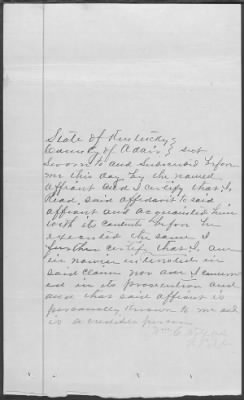 State of Kentucky
County of Adair } sct
Sworn to and Subscribed before
me this day by the named
affiant and I certify that I
read said affidavit to said
affiant and acquainted him
with its contents before he
executed the same I
further certify that I am
in nowise interested in
said claim nor am I concern
ed in its prosecution and
and that said affiant is
personally known to me and
is a credible person
Wm C